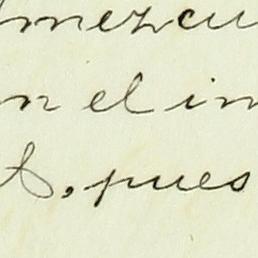 mezcu
n el in
, pues